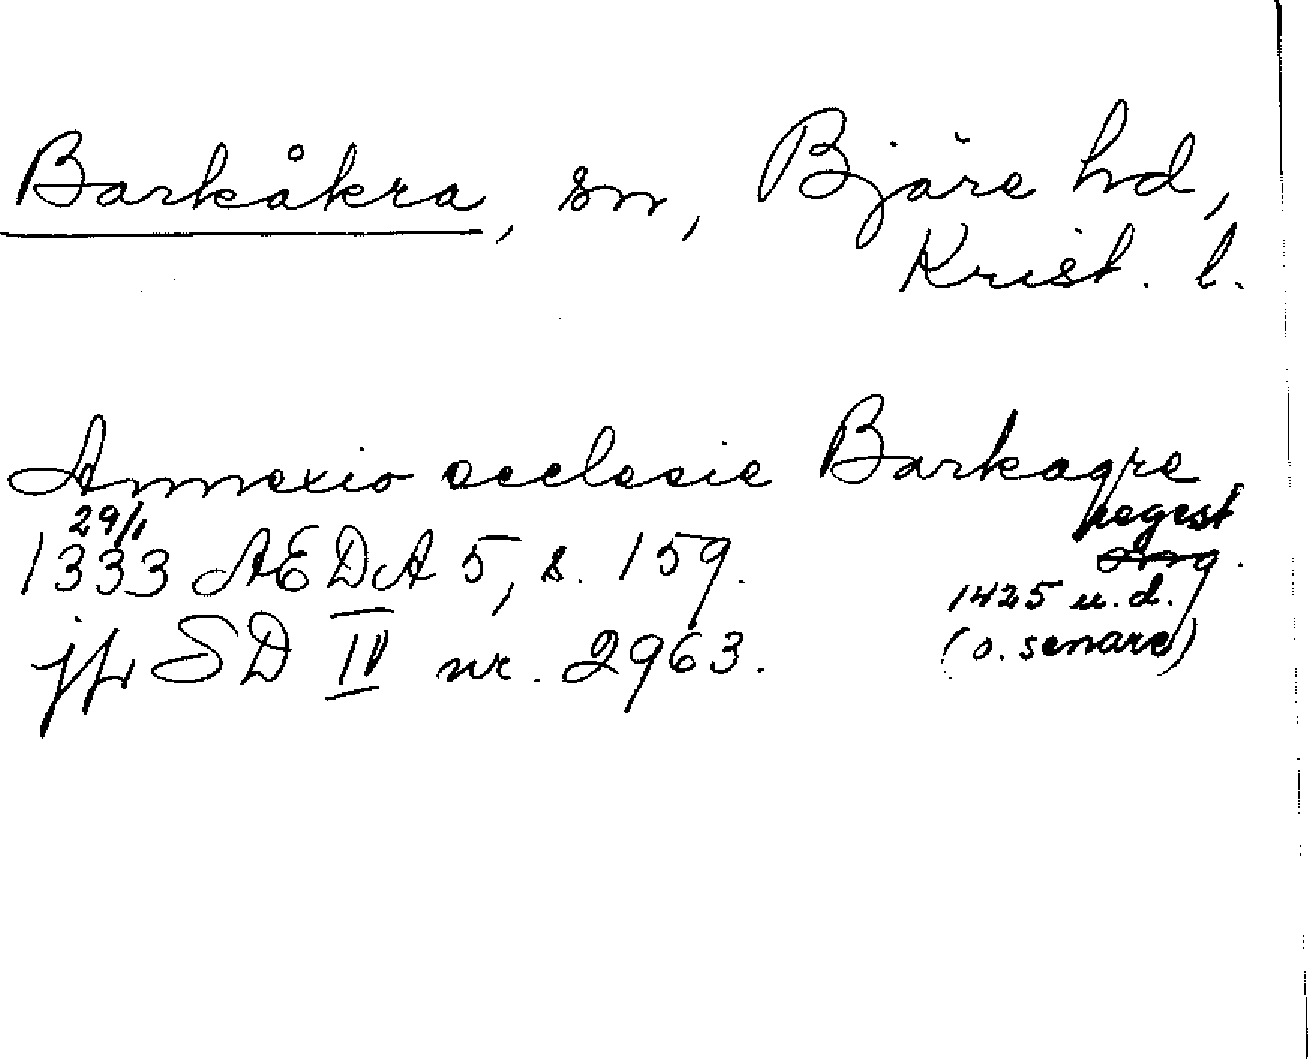 Barkåkra, sn, Bjäre hd,
Krist. l.
Annexio ecclesie Barkagre
29/1 regest
1333 AEDA 5, s. 159. orig.
1425 u. d.
jfr SD IV nr. 2963. (o. senare)